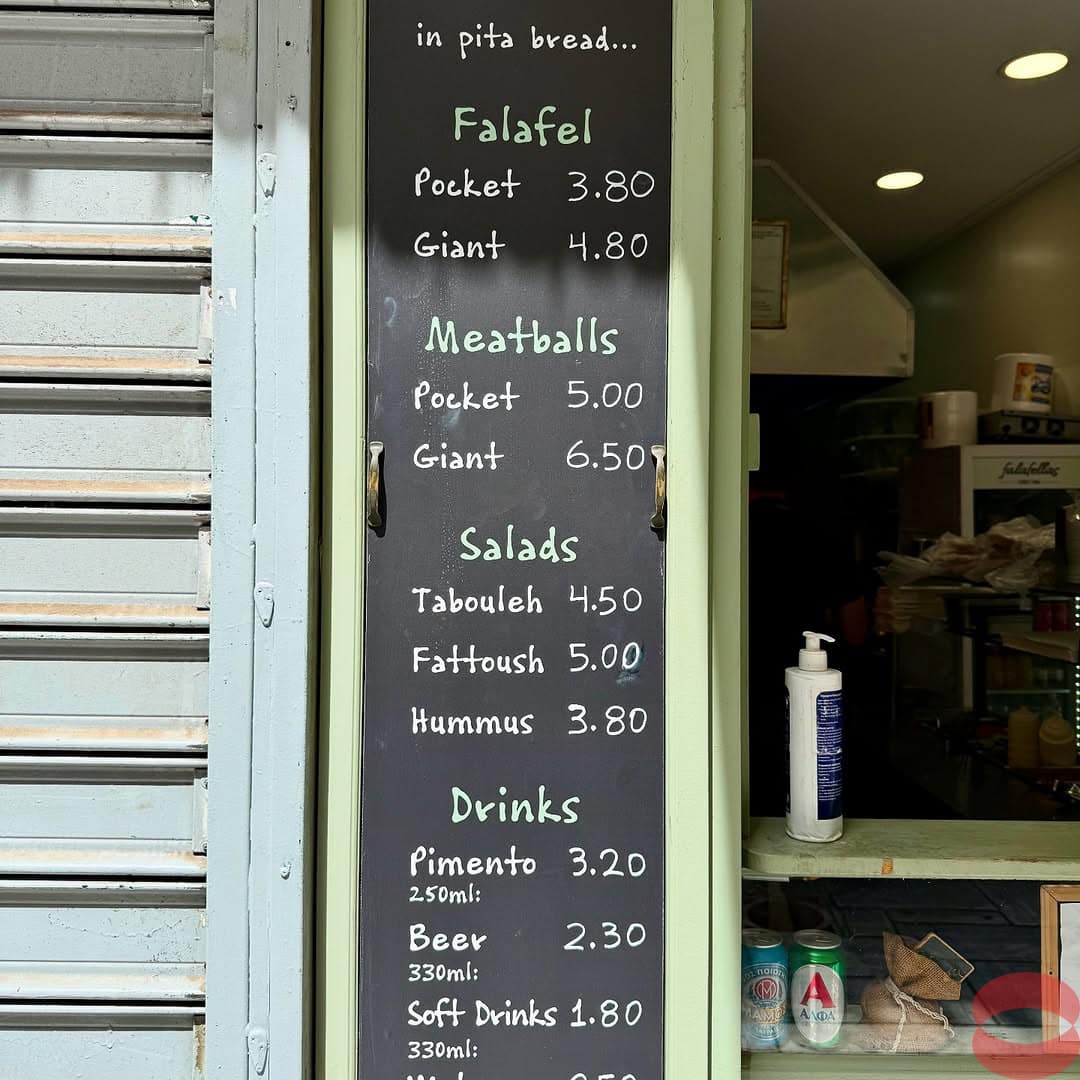 in pita bread...
Falafel
Pocket 3.80
Giant 4.80
Meatballs
Pocket 5.00
Giant 6.50
Salads
Tabouleh 4.50
Fattoush 5.00
Hummus 3.80
Drinks
Pimento 3.20
250ml:
Beer 2.30
330ml:
Soft Drinks 1.80
330ml:
falafellas
ΑΛΦΑ